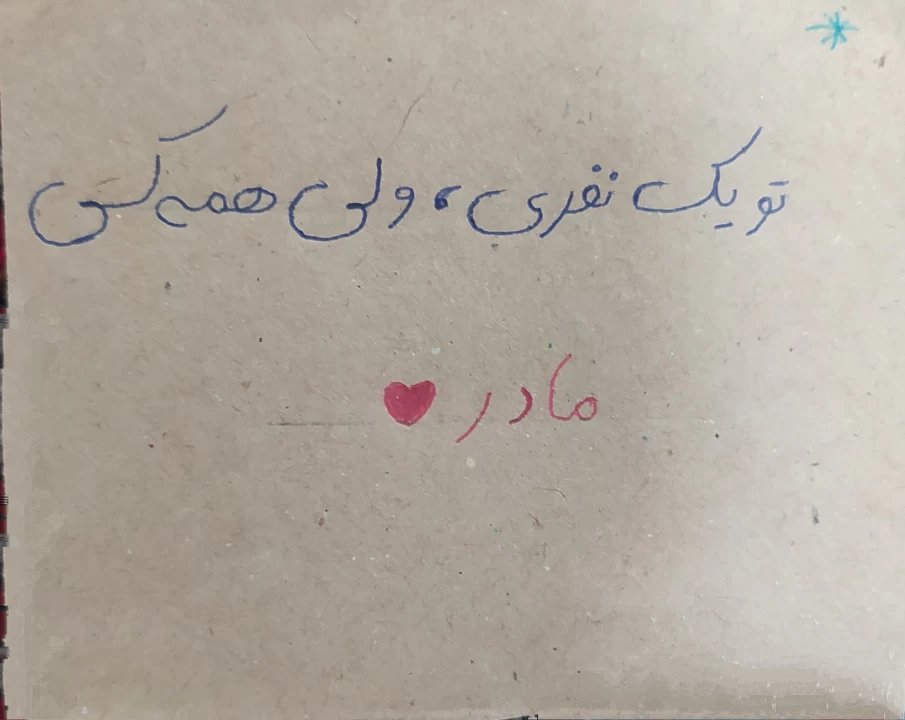 تو یک نفری، ولی همه کسی
مادر ♥